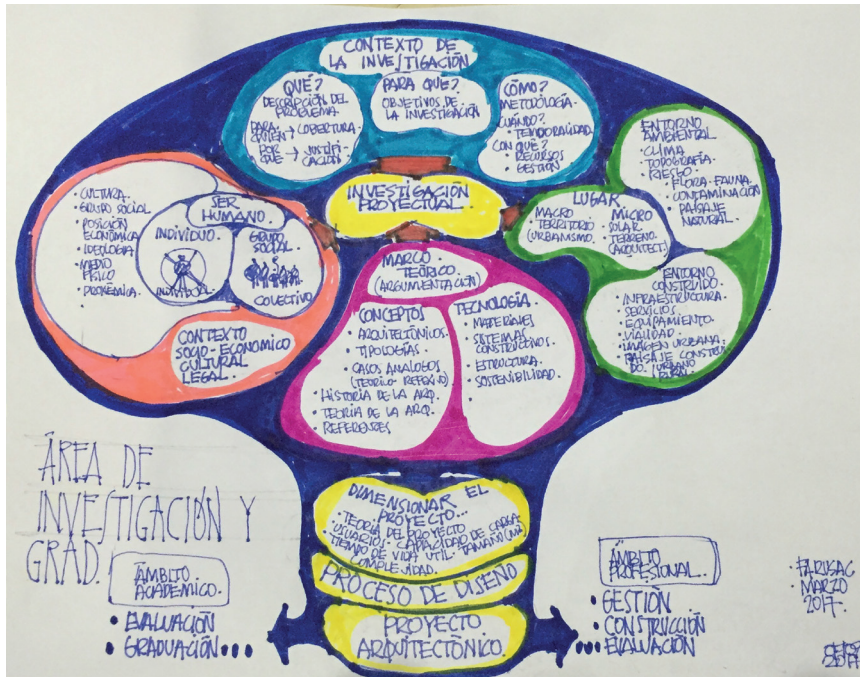 CONTEXTO DE
LA INVESTIGACIÓN
QUÉ?
DESCRIPCIÓN DEL
PROBLEMA
PARA
QUIÉN → COBERTURA
POR
QUE → JUSTIFI-
CACIÓN
PARA QUÉ?
OBJETIVOS DE
LA INVESTIGACIÓN
CÓMO?
METODOLOGÍA
CUÁNDO?
• TEMPORALIDAD
CON QUÉ?
• RECURSOS
• GESTIÓN
INVESTIGACIÓN
PROYECTUAL
• CULTURA
• GRUPO SOCIAL
• POSICIÓN
ECONÓMICA
• IDEOLOGÍA
• MEDIO
FÍSICO
• PROXÉMICA
SER
HUMANO
INDIVIDUO
GRUPO
SOCIAL
COLECTIVO
CONTEXTO
SOCIO-ECONOMICO
CULTURAL
LEGAL
ENTORNO
AMBIENTAL
• CLIMA
• TOPOGRAFÍA
• RIESGO
• FLORA-FAUNA
• CONTAMINACIÓN
• PAISAJE
NATURAL
LUGAR
MACRO
TERRITORIO
(URBANISMO
MICRO
SOLAR
TERRENO
(ARQUITECT)
ENTORNO
CONSTRUIDO
• INFRAESTRUCTURA
• SERVICIOS
• EQUIPAMIENTO
• VIALIDAD
• IMAGEN URBANA
• PAISAJE CONSTRUI
DO URBANO
RURAL
MARCO
TEÓRICO
(ARGUMENTACIÓN)
CONCEPTOS
• ARQUITECTÓNICOS
• TIPOLOGÍAS
• CASOS ANALOGOS
• HISTORIA DE LA ARQ.
• TEORIA DE LA ARQ.
• REFERENTES
TECNOLOGÍA
• MATERIALES
• SISTEMAS
CONSTRUCTIVOS
• ESTRUCTURA
• SOSTENIBILIDAD
DIMENSIONAR EL
PROYECTO...
• TEORÍA DEL PROYECTO
• USUARIOS • CAPACIDAD DE CARGA
• TIEMPO DE VIDA UTIL • TAMAÑO (M2)
COMPLEJIDAD
PROCESO DE DISEÑO
PROYECTO
ARQUITECTÓNICO
ÁREA DE
INVESTIGACIÓN Y
GRAD.
ÁMBITO
ACADEMICO
• EVALUACIÓN
• GRADUACIÓN...
ÁMBITO
PROFESIONAL
• GESTIÓN
• CONSTRUCCIÓN
...EVALUACIÓN
• FARUSAC
• MARZO
2017
2017